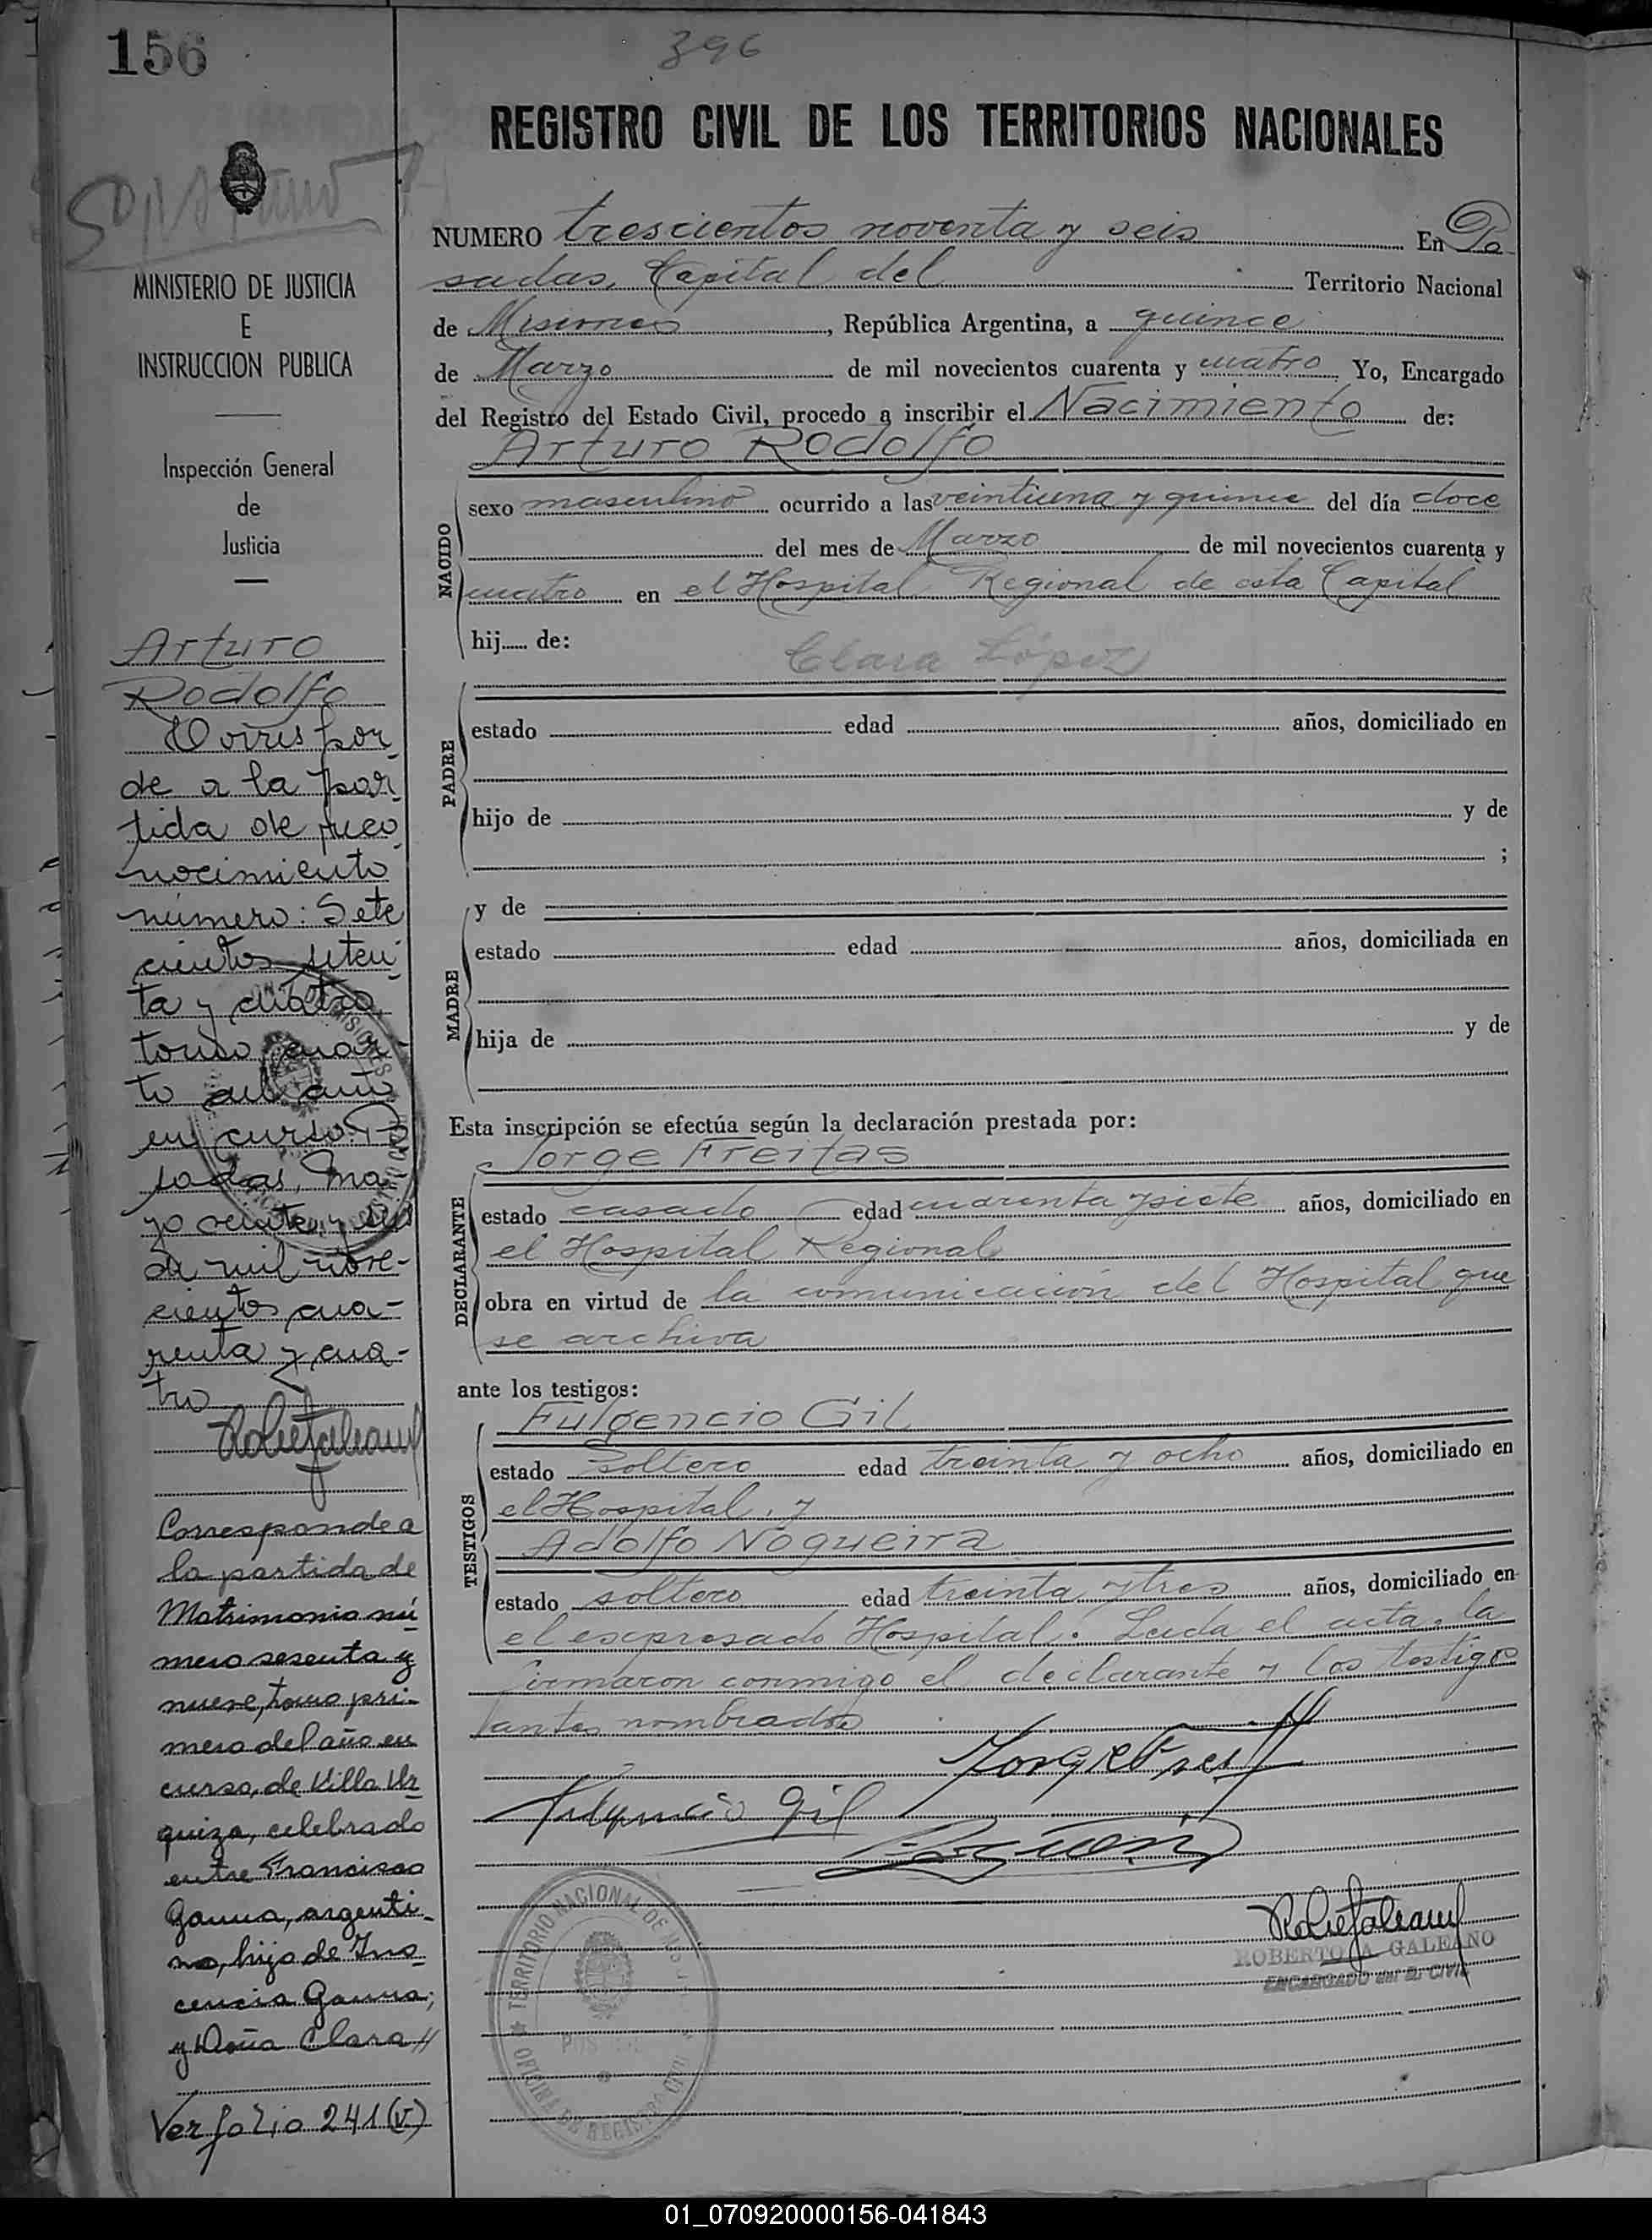 156
396
REGISTRO CIVIL DE LOS TERRITORIOS NACIONALES
NUMERO trescientos noventa y seis En Po
sadas, Capital del Territorio Nacional
de Misiones, República Argentina, a quince
de Marzo de mil novecientos cuarenta y cuatro Yo, Encargado
del Registro del Estado Civil, procedo a inscribir el Nacimiento de:
Arturo Rodolfo
NACIDO
sexo masculino ocurrido a las veintiuna y quince del día doce
del mes de Marzo de mil novecientos cuarenta y
cuatro en el Hospital Regional de esta Capital
hij..... de:
Clara López
PADRE
estado edad años, domiciliado en
hijo de y de
;
MADRE
y de
estado edad años, domiciliada en
hija de y de
Esta inscripción se efectúa según la declaración prestada por:
Jorge Freitas
DECLARANTE
estado casado edad cuarenta y siete años, domiciliado en
el Hospital Regional
obra en virtud de la comunicación del Hospital que
se archiva
ante los testigos:
TESTIGOS
Fulgencio Gil
estado soltero edad treinta y ocho años, domiciliado en
el Hospital, y
Adolfo Nogueira
estado soltero edad treinta y tres años, domiciliado en
el expresado Hospital. Leida el acta, la
firmaron conmigo el declarante y los testigos
antes nombrados
Fulgencio Gil
ROBERTO A. GALEANO
ENCARGADO DEL R. CIVIL
TERRITORIO NACIONAL DE MISIONES
POSADAS
OFICINA DE REGISTRO CIVIL
MINISTERIO DE JUSTICIA
E
INSTRUCCION PUBLICA
Inspección General
de
Justicia
Arturo
Rodolfo
Corres pon
de a la par
tida de reco
nocimiento
número: Sete
cientos seten
ta y cuatro
tomo cuar-
to del año
en curso. Po
sadas, Ma
yo veinte y
de mil nove-
cientos cua-
renta y cua-
tro
Corresponde a
la partida de
Matrimonio nú
mero sesenta y
nueve, tomo pri-
mero del año en
curso, de Villa Ur
quiza, celebrado
entre Francisco
Gauna, argenti-
no, hijo de Ino
cencia Gauna;
y Doña Clara //
Ver folio 241 (v.)
01_070920000156-041843